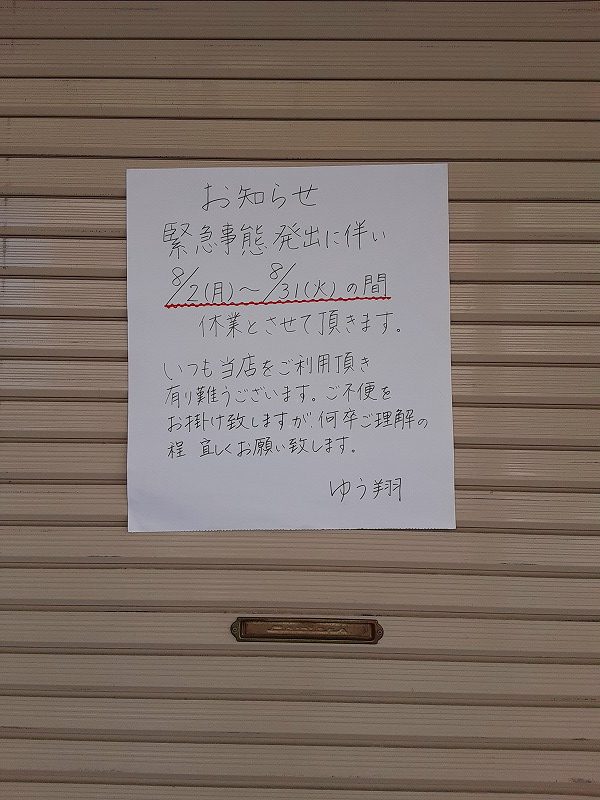 お知らせ
緊急事態発出に伴い
8/2(月)～8/31(火)の間
休業とさせて頂きます。
いつも当店をご利用頂き
有り難うございます。ご不便を
お掛け致しますが、何卒ご理解の
程 宜しくお願い致します。
ゆう翔